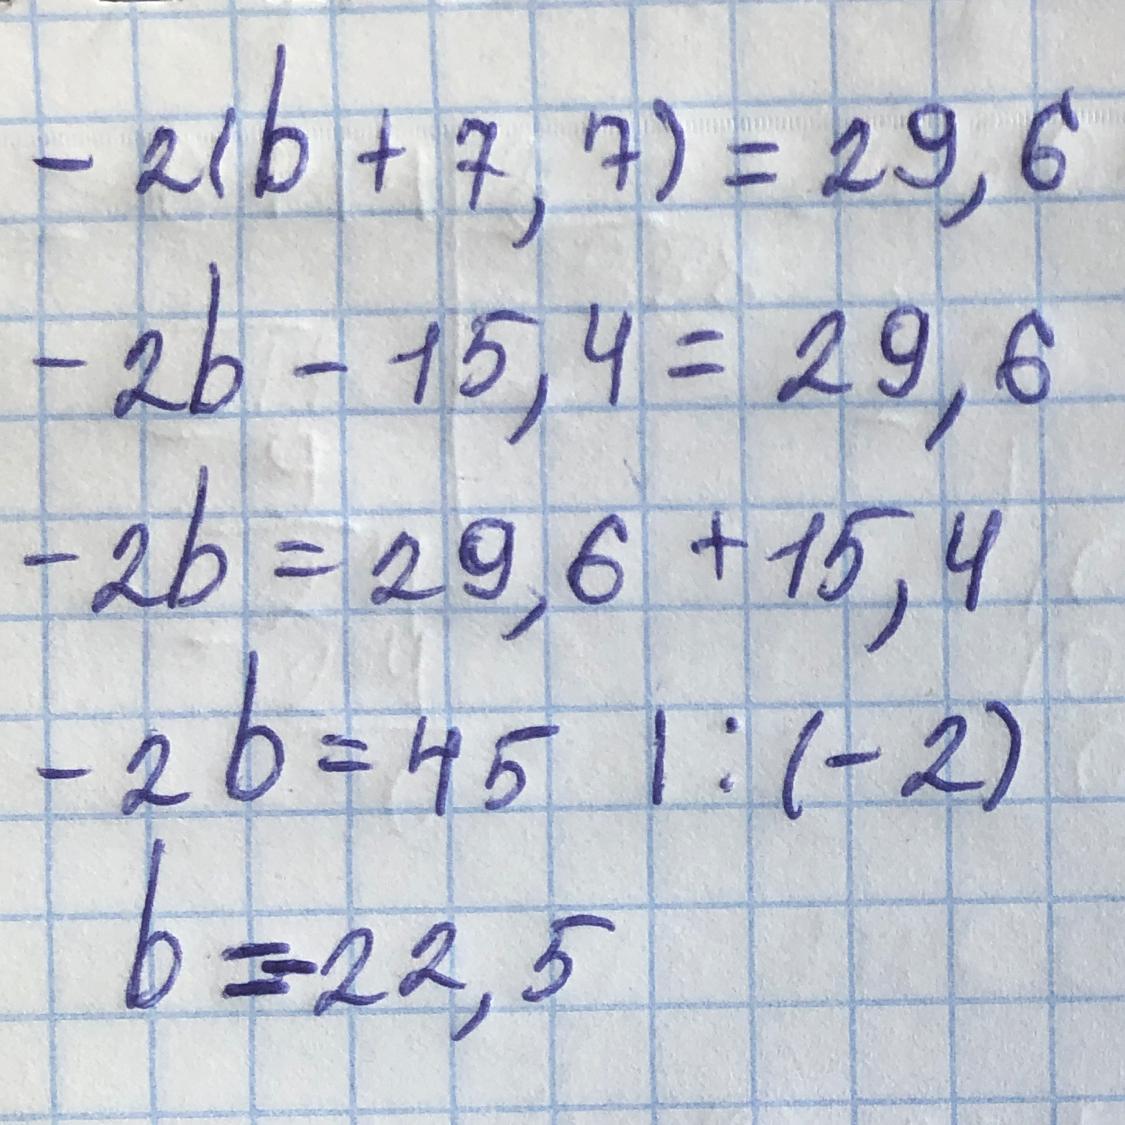 - 2(b + 7,7) = 29,6
- 2b - 15,4 = 29,6
- 2b = 29,6 + 15,4
- 2b = 45 | : (- 2)
b = -22,5